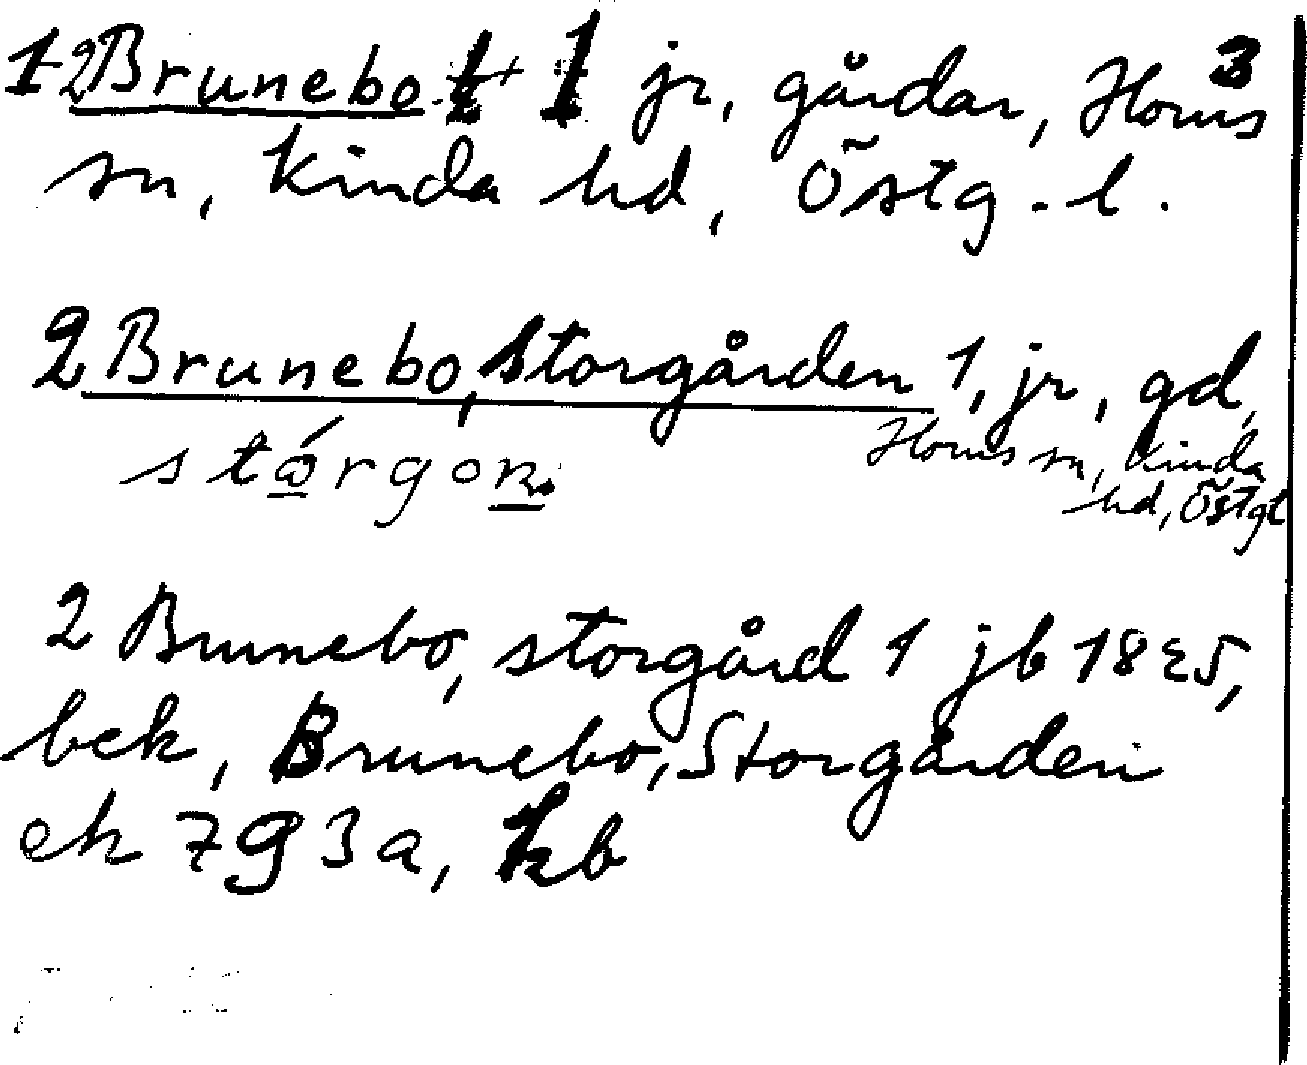 1-2 Brunebo 1 jr, gårdar, Horns 3
sn, Kinda hd, Östg. l.
2 Brunebo, Storgården 1, jr, gd,
Horns sn, Kinda
hd, Östgl
2 Brunebo, storgård 1 jb 1825,
bek, Brunebo, Storgården
ek 7g3a, kb